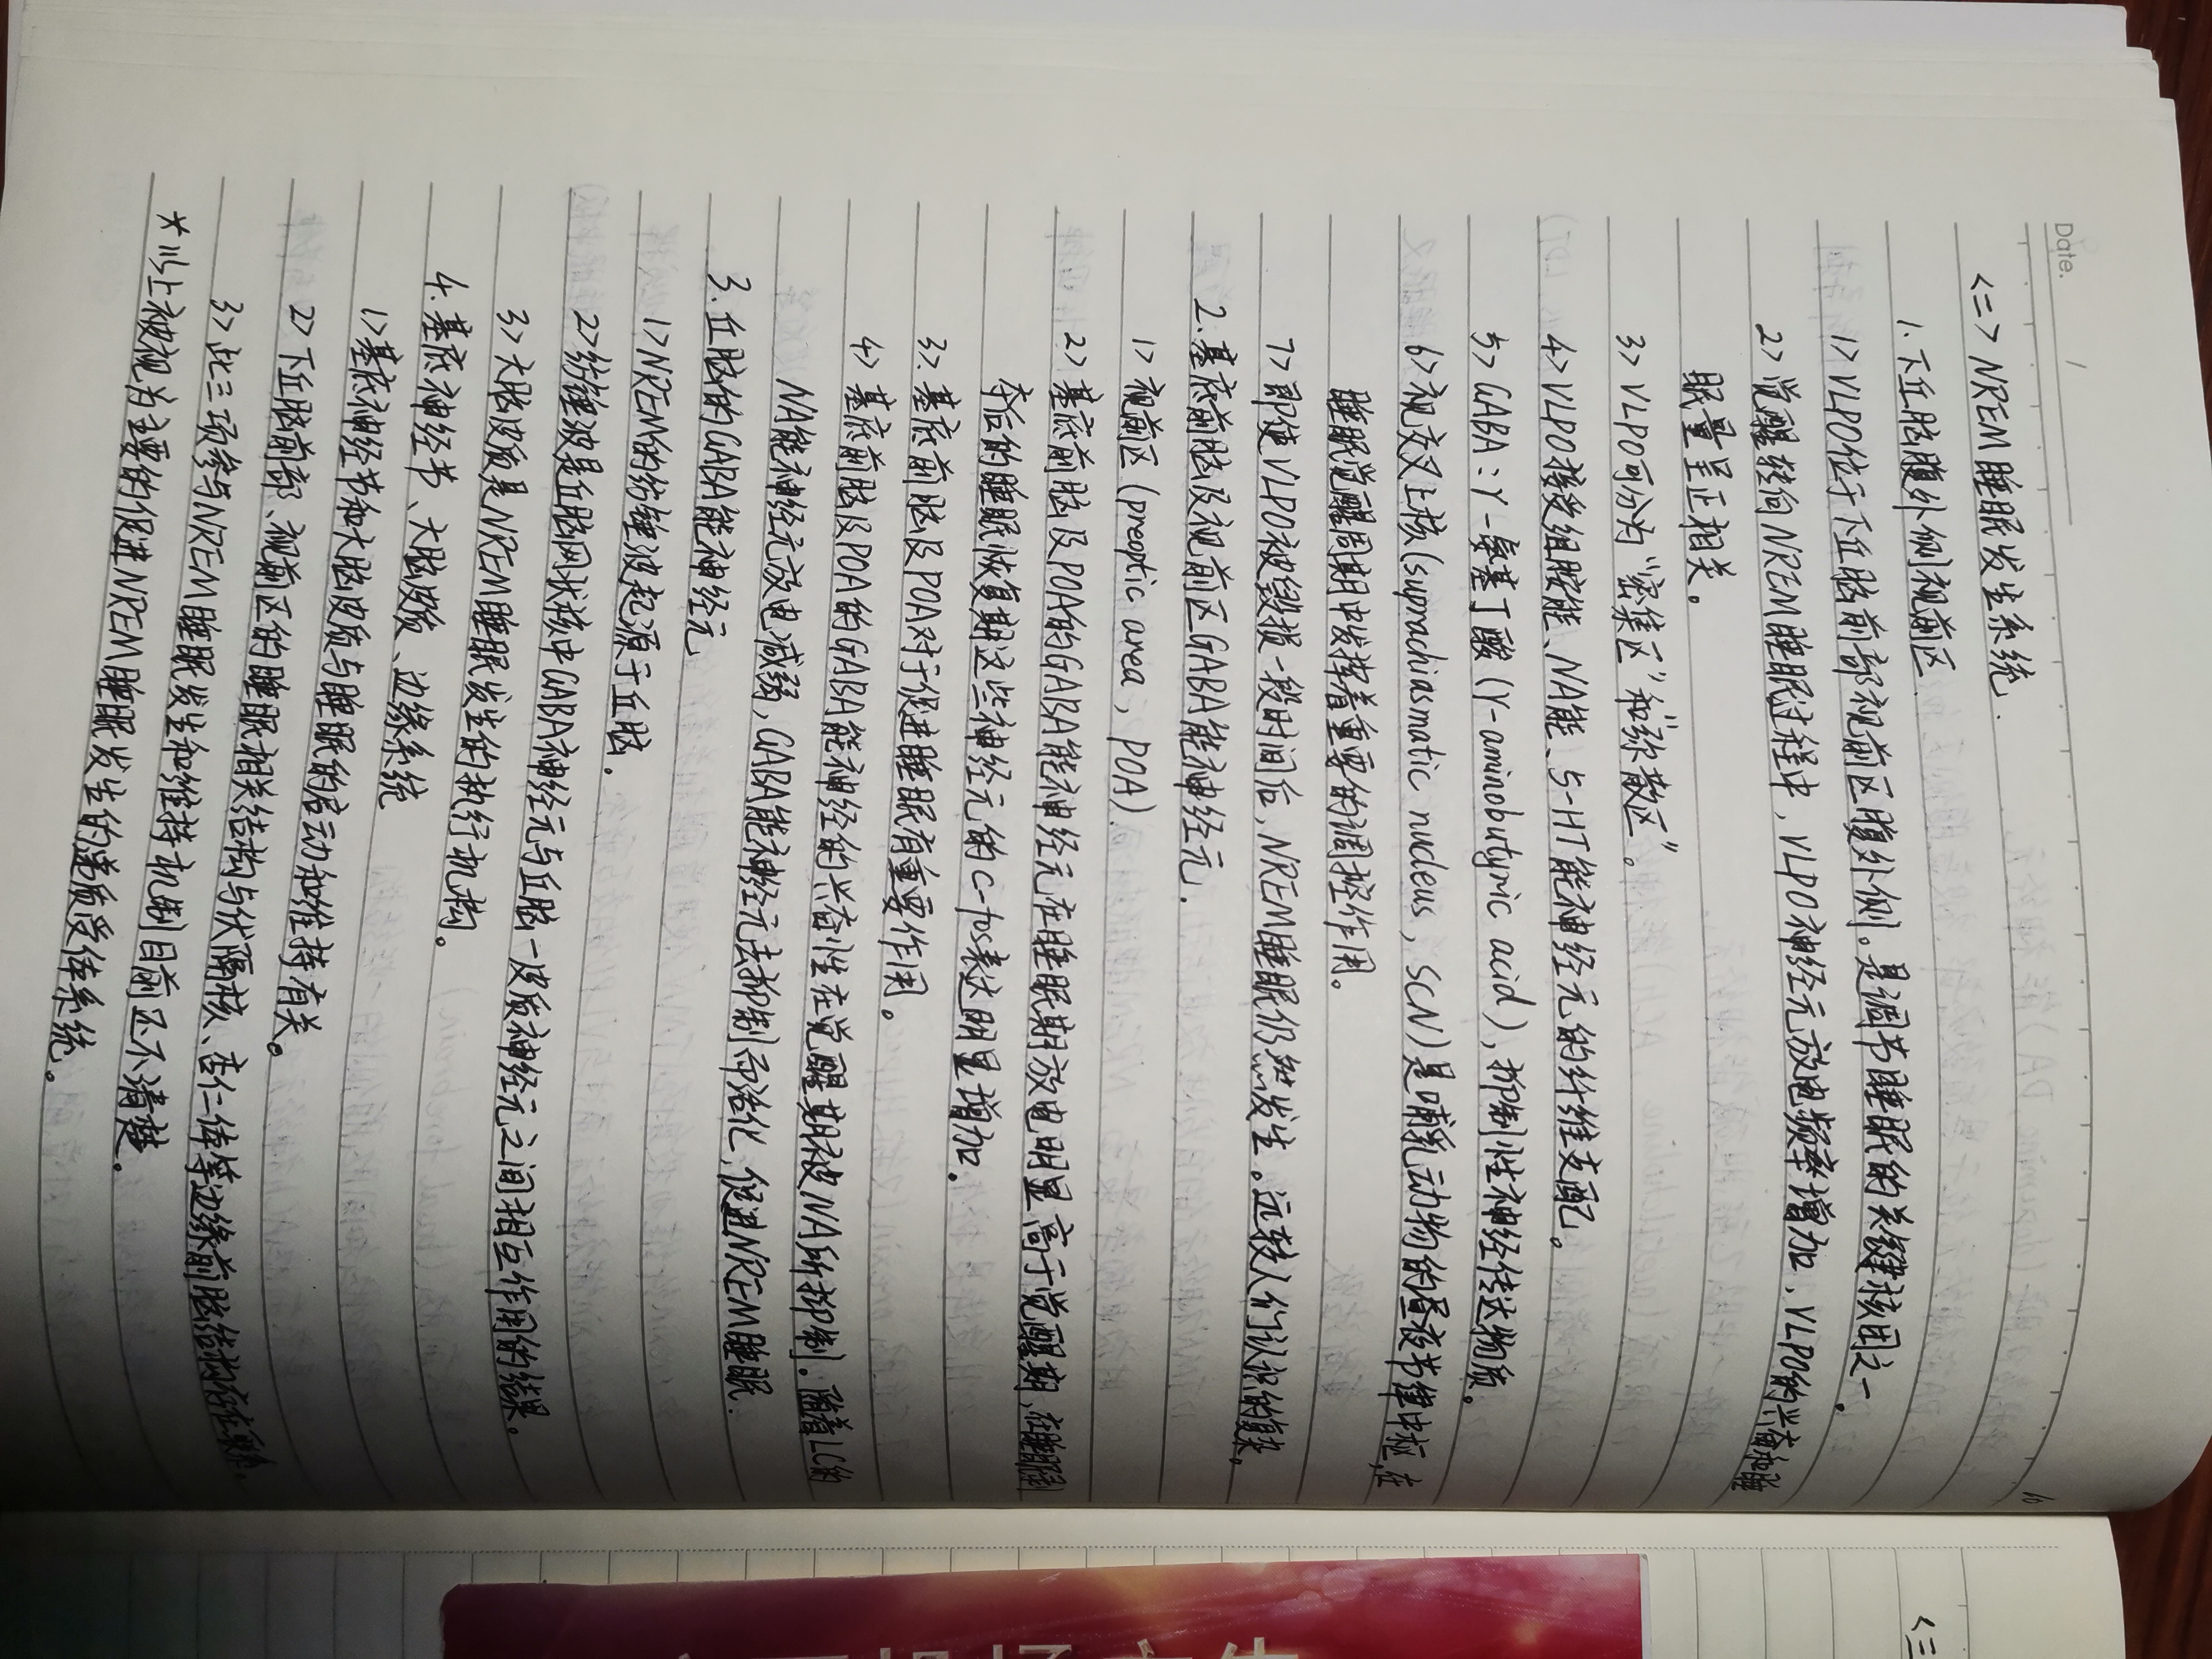 Date. /
10
<二> NREM睡眠发生系统.
1. 下丘脑腹外侧视前区
1> VLPO位于下丘脑前部视前区腹外侧。是调节睡眠的关键核团之一。
2> 觉醒转向NREM睡眠过程中, VLPO神经元放电频率增加. VLPO的兴奋和睡
眠量呈正相关。
3> VLPO可分为“密集区”和“弥散区”。
4> VLPO接受组胺能、NA能、5-HT能神经元的纤维支配。
5> GABA:γ-氨基丁酸(γ-aminobutyric acid), 抑制性神经传达物质。
6> 视交叉上核(suprachiasmatic nucleus, SCN)是哺乳动物的昼夜节律中枢,在
睡眠觉醒周期中发挥着重要的调控作用。
7> 即使VLPO被毁损一段时间后, NREM睡眠仍然发生。远较人们认识的复杂。
2. 基底前脑及视前区GABA能神经元.
1> 视前区(preoptic area, POA).
2> 基底前脑及POA的GABA能神经元在睡眠期放电明显高于觉醒期,在睡眠剥
夺后的睡眠恢复期这些神经元的c-fos表达明显增加.
3> 基底前脑及POA对于促进睡眠有重要作用。
4> 基底前脑及POA的GABA能神经的兴奋性在觉醒期被NA所抑制.随着LC的
NA能神经元放电减弱, GABA能神经元去抑制而活化,促进NREM睡眠.
3. 丘脑的GABA能神经元
1> NREM的纺锤波起源于丘脑.
2> 纺锤波是丘脑网状核中GABA神经元与丘脑-皮质神经元之间相互作用的结果。
3> 大脑皮质是NREM睡眠发生的执行机构。
4. 基底神经节、大脑皮质、边缘系统
1> 基底神经节和大脑皮质与睡眠的启动和维持有关。
2> 下丘脑前部、视前区的睡眠相关结构与伏隔核、杏仁体等边缘前脑结构存在联系.
3> 此三项参与NREM睡眠发生和维持机制目前还不清楚.
* 以上被视为主要的促进NREM睡眠发生的递质受体系统.